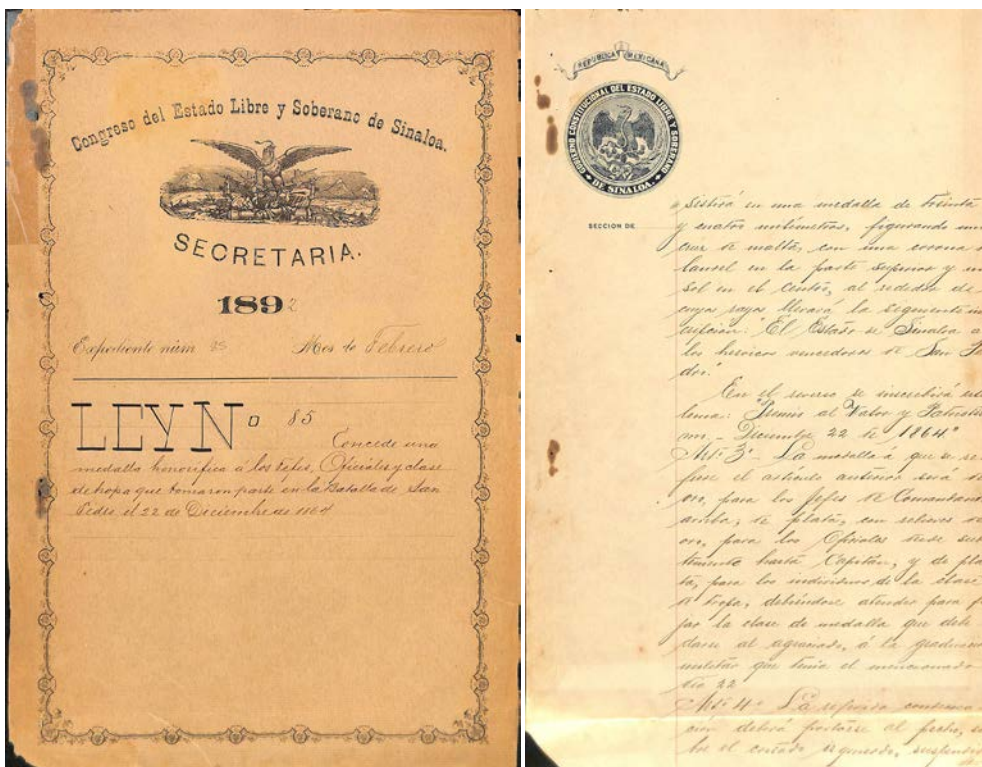 Congreso del Estado Libre y Soberano de Sinaloa.
SECRETARIA.
1892
Expediente núm 25 Mes de Febrero
LEY Nº 85 Concede una
medalla honorífica á los Gefes, Oficiales y clase
de tropa que tomaron parte en la Batalla de San
Pedro el 22 de Diciembre de 1864
REPUBLICA MEXICANA
GOBIERNO CONSTITUCIONAL DEL ESTADO LIBRE Y SOBERANO
DE SINALOA.
SECCION DE
sistirá en una medalla de treinta
y cuatro milimetros, figurando una
cruz de malta, con una corona
laurel en la parte superior y un
sol en el centro, al rededor de
cuyos rayos llevará la siguiente in
cripcion: "El Estado de Sinaloa a
los heroicos vencedores de San Pe
dro."
En el reverso se inscribirá este
lema: "Premio al Valor y Patriotis
mo - Diciembre 22 de 1864."
Art. 3º - La medalla á que se re
fiere el artículo anterior será de
oro, para los Jefes de Comandante
arriba; de plata, con relieves de
oro, para los Oficiales desde sub
teniente hasta Capitán, y de pla
ta, para los individuos de la clase
de tropa, debiéndose atender para fi
jar la clase de medalla que debe
darse al agraciado, á la graduacion
militar que tenia el mencionado
dia 22
Art. 4º La referida condecora
ción deberá portarse al pecho, so
bre el costado izquierdo, suspendida